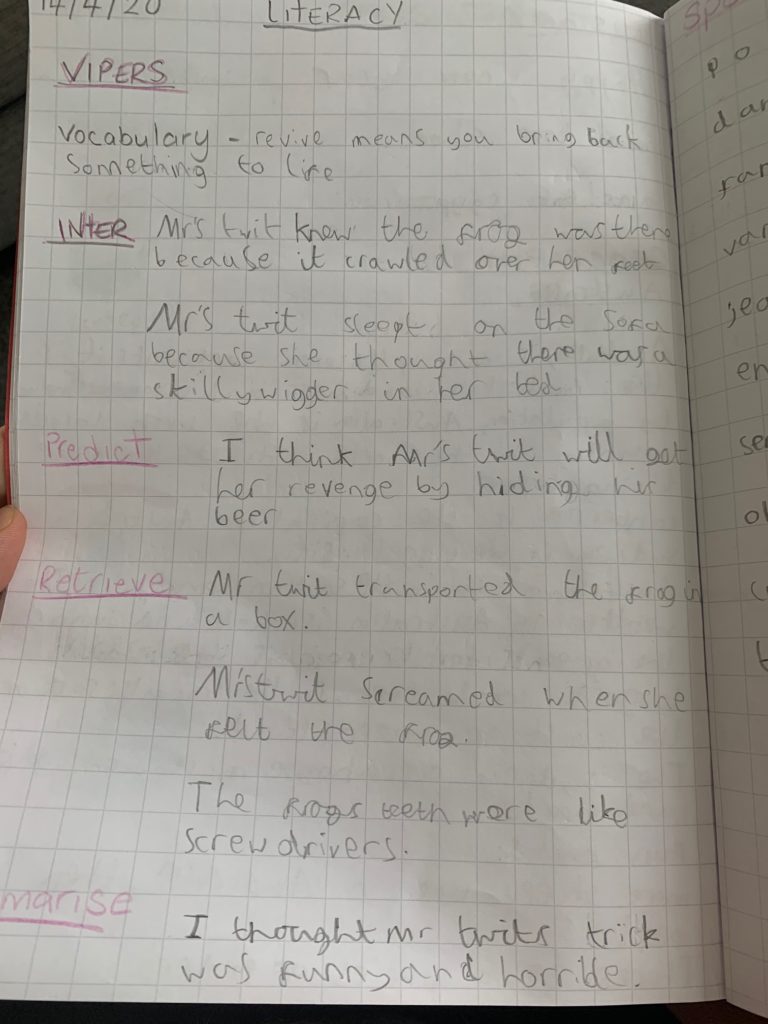 14/4/20 LITERACY
VIPERS
Vocabulary - revive means you bring back
something to life
INTER Mr's twit knew the frog was there
because it crawled over her feet
Mr's twit sleept on the sofa
because she thought there was a
skillywigger in her bed
Predict I think Mr's twit will get
her revenge by hiding his
beer
Retrieve Mr twit transported the frog in
a box.
Mrs twit screamed when she
felt the frog.
The frogs teeth were like
screwdrivers.
marise I thought Mr twits trick
was funny and horrible.
spo
po
dar
far
var
jea
en
se
ol